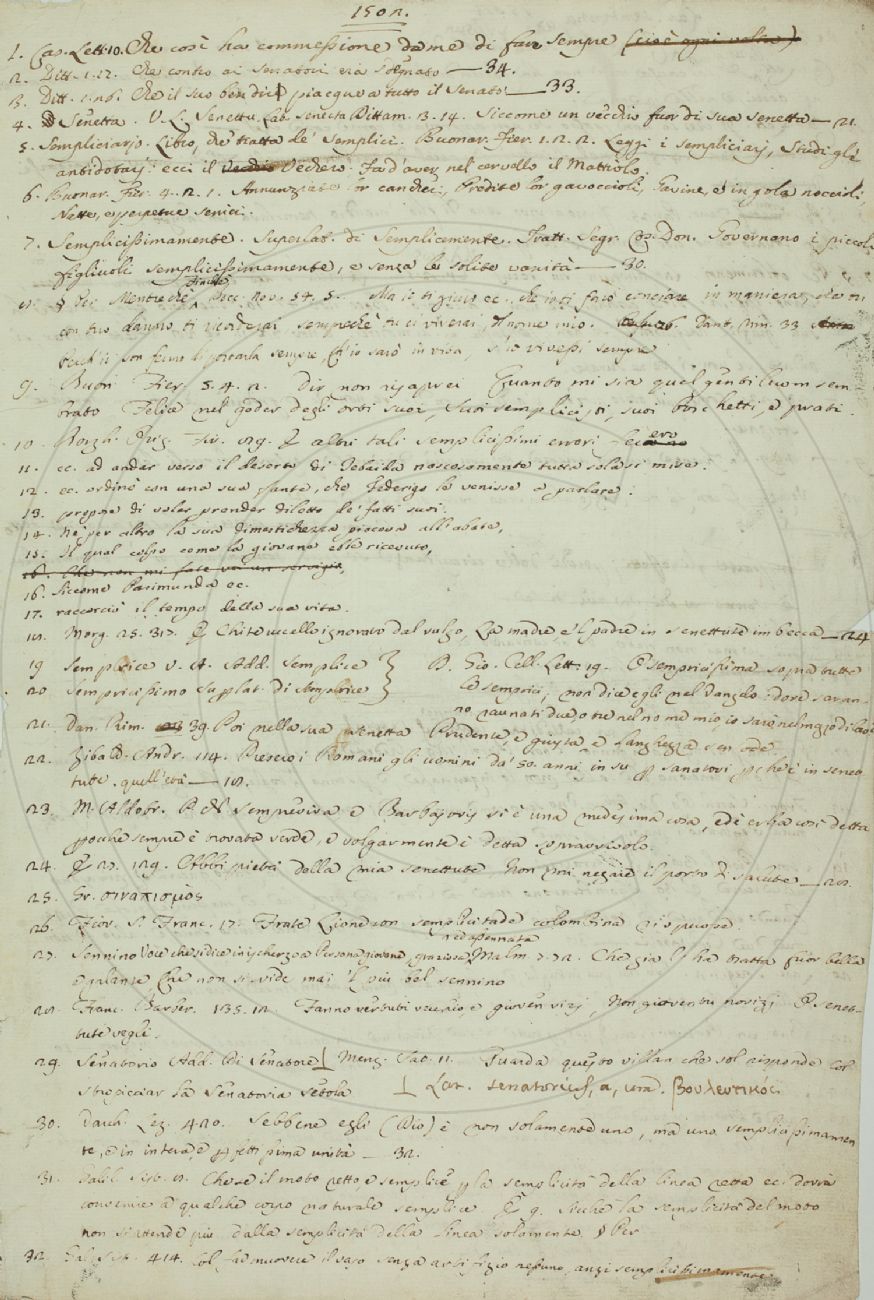 1502.
1. Cas. Lett. 10. Che così ha commessione da me di far sempre (cioè ogni volta)
2. Ditt. 1. 12. Che contro ai senatori era sdegnato — 34.
3. Ditt. 1. 26. Che il suo ben dir piaceva a tutto il Senato — 33.
4. Senetta. V. L. Senettu. Lat. senecta Dittam. 13. 14. Siccome un vecchio fuor di sua senetta — 21.
5. Sempliciario. Libro, che tratta de' semplici. Buonar. Fier. 1. 2. 2. Leggi i sempliciarj, Studi gli
antidotarj: ecci il Vecchio Fa d'aver nel cervello il Mattiolo.
6. Buonar. Fier. 4. 2. 1. Annunziate lor cancheri, Predite lor gavoccioli, Gavine, e in gola noccioli,
Nette, e perpetue senici.
7. Semplicissimamente. Superlat. di Semplicemente. Tratt. Segr. Cos. Don. Governano i piccoli
figliuoli semplicissimamente, e senza le solite vanità — 30.
8. Per Mentreché Bocc. Nov. 54. 5. Ma io ti giuro ec. che io ti farò conciare in maniera, che tu
con tuo danno ti ricorderai, sempreché tu ci viverai, del nome mio. Dant. Rim. 33
son fermo di portarla sempre, Ch'io sarò in vita, s'io vivessi sempre
9. Buon Fier. 5. 4. 2. Dir non ti saprei Quanto mi sia quel gentiluom sem-
brato Felice nel goder degli orti suoi, Suoi semplicisti, suoi boschetti, e prati.
10. Borgh. Orig. Fir. 219. E altri tali semplicissimi errori
11. ec. ad andar verso il deserto di Tebaida nascosamente tutta sola si mise:
12. ec. ordinò con una sua fante, che Federigo le venisse a parlare:
13. propose di voler prender diletto de' fatti suoi.
14. Né per altro la sua dimestichezza piaceva all'abate,
15. Il qual colpo come la giovane ebbe ricevuto,
16. Che non mi fate voi un servigio,
16. Siccome Pasimunda ec.
17. raccorciò il tempo della sua vita.
18. Morg. 25. 317. È Chite uccello ignorato dal vulgo, La madre, e 'l padre in senettute imbecca — 24
19 Semplice V. A. Add. Semplice } B. Gio. Cell. Lett. 19. O sempricissima sopra tutte
20 Sempricissimo Superlat. di Semplice } le semprici; non dice egli nel Vangelo: dove saran-
no raunati due, o tre nel nome mio io sarò nel mezzo di loro
21. Dan. Rim. 39. Poi nella sua senetta Prudente, e giusta, e larghezza sen ode
22. Zibald. Andr. 114. Elessero i Romani gli uomini da' 50. anni in su per sanatori perchè in senet-
tute. quell'età — 18.
23. M. Aldobr. P. N. Sempreviva e Barbajovis si è una medesima cosa, ed è erba così detta
perocchè sempre è trovata verde, e volgarmente è detta sopravvivolo.
24. E 27. 129. Abbi pietà della mia senettute Non mi negare il porto di salute — 20.
25. Gr. σιναπισμός
26. Fior. S. Franc. 17. Frate Lione con semplicitade colombina rispuose
27. Sennino Voce che si dice in ischerzo a Persona giovane, graziosa, ed assennata Malm. 7. 72. Che già l'ha tratta fuor bella
e galante Che non si vide mai 'l più bel sennino
28. Franc. Barber. 135. 12. Fanno vertuti vecchio e gioven vizj, Non gioventu novizj O senet-
tute vegli.
29. Senatorio Add. Di Senatore ⊥ Menz. Sat. 11. Guarda questo villan che sol risponde Col
stropicciar la Senatoria setola ⊥ Lat. senatorius, a, um. βουλευτικός.
30. Varch. Lez. 420. Sebbene egli (Dio) è non solamente uno, ma uno semplicissimamen
te, e in intera, e perfettissima unità — 32.
31. Galil. Sist. 8. Che se il moto retto, è semplice per la semplicità della linea retta ec. dovrà
convenire a qualche corpo naturale semplice. E 9. Sicché la semplicità del moto
non si attende più dalla semplicità della linea solamente. Per
32. Gal. Sist. 414. Col far muovere il vaso senza artifizio nessuno, anzi semplicissimamente.